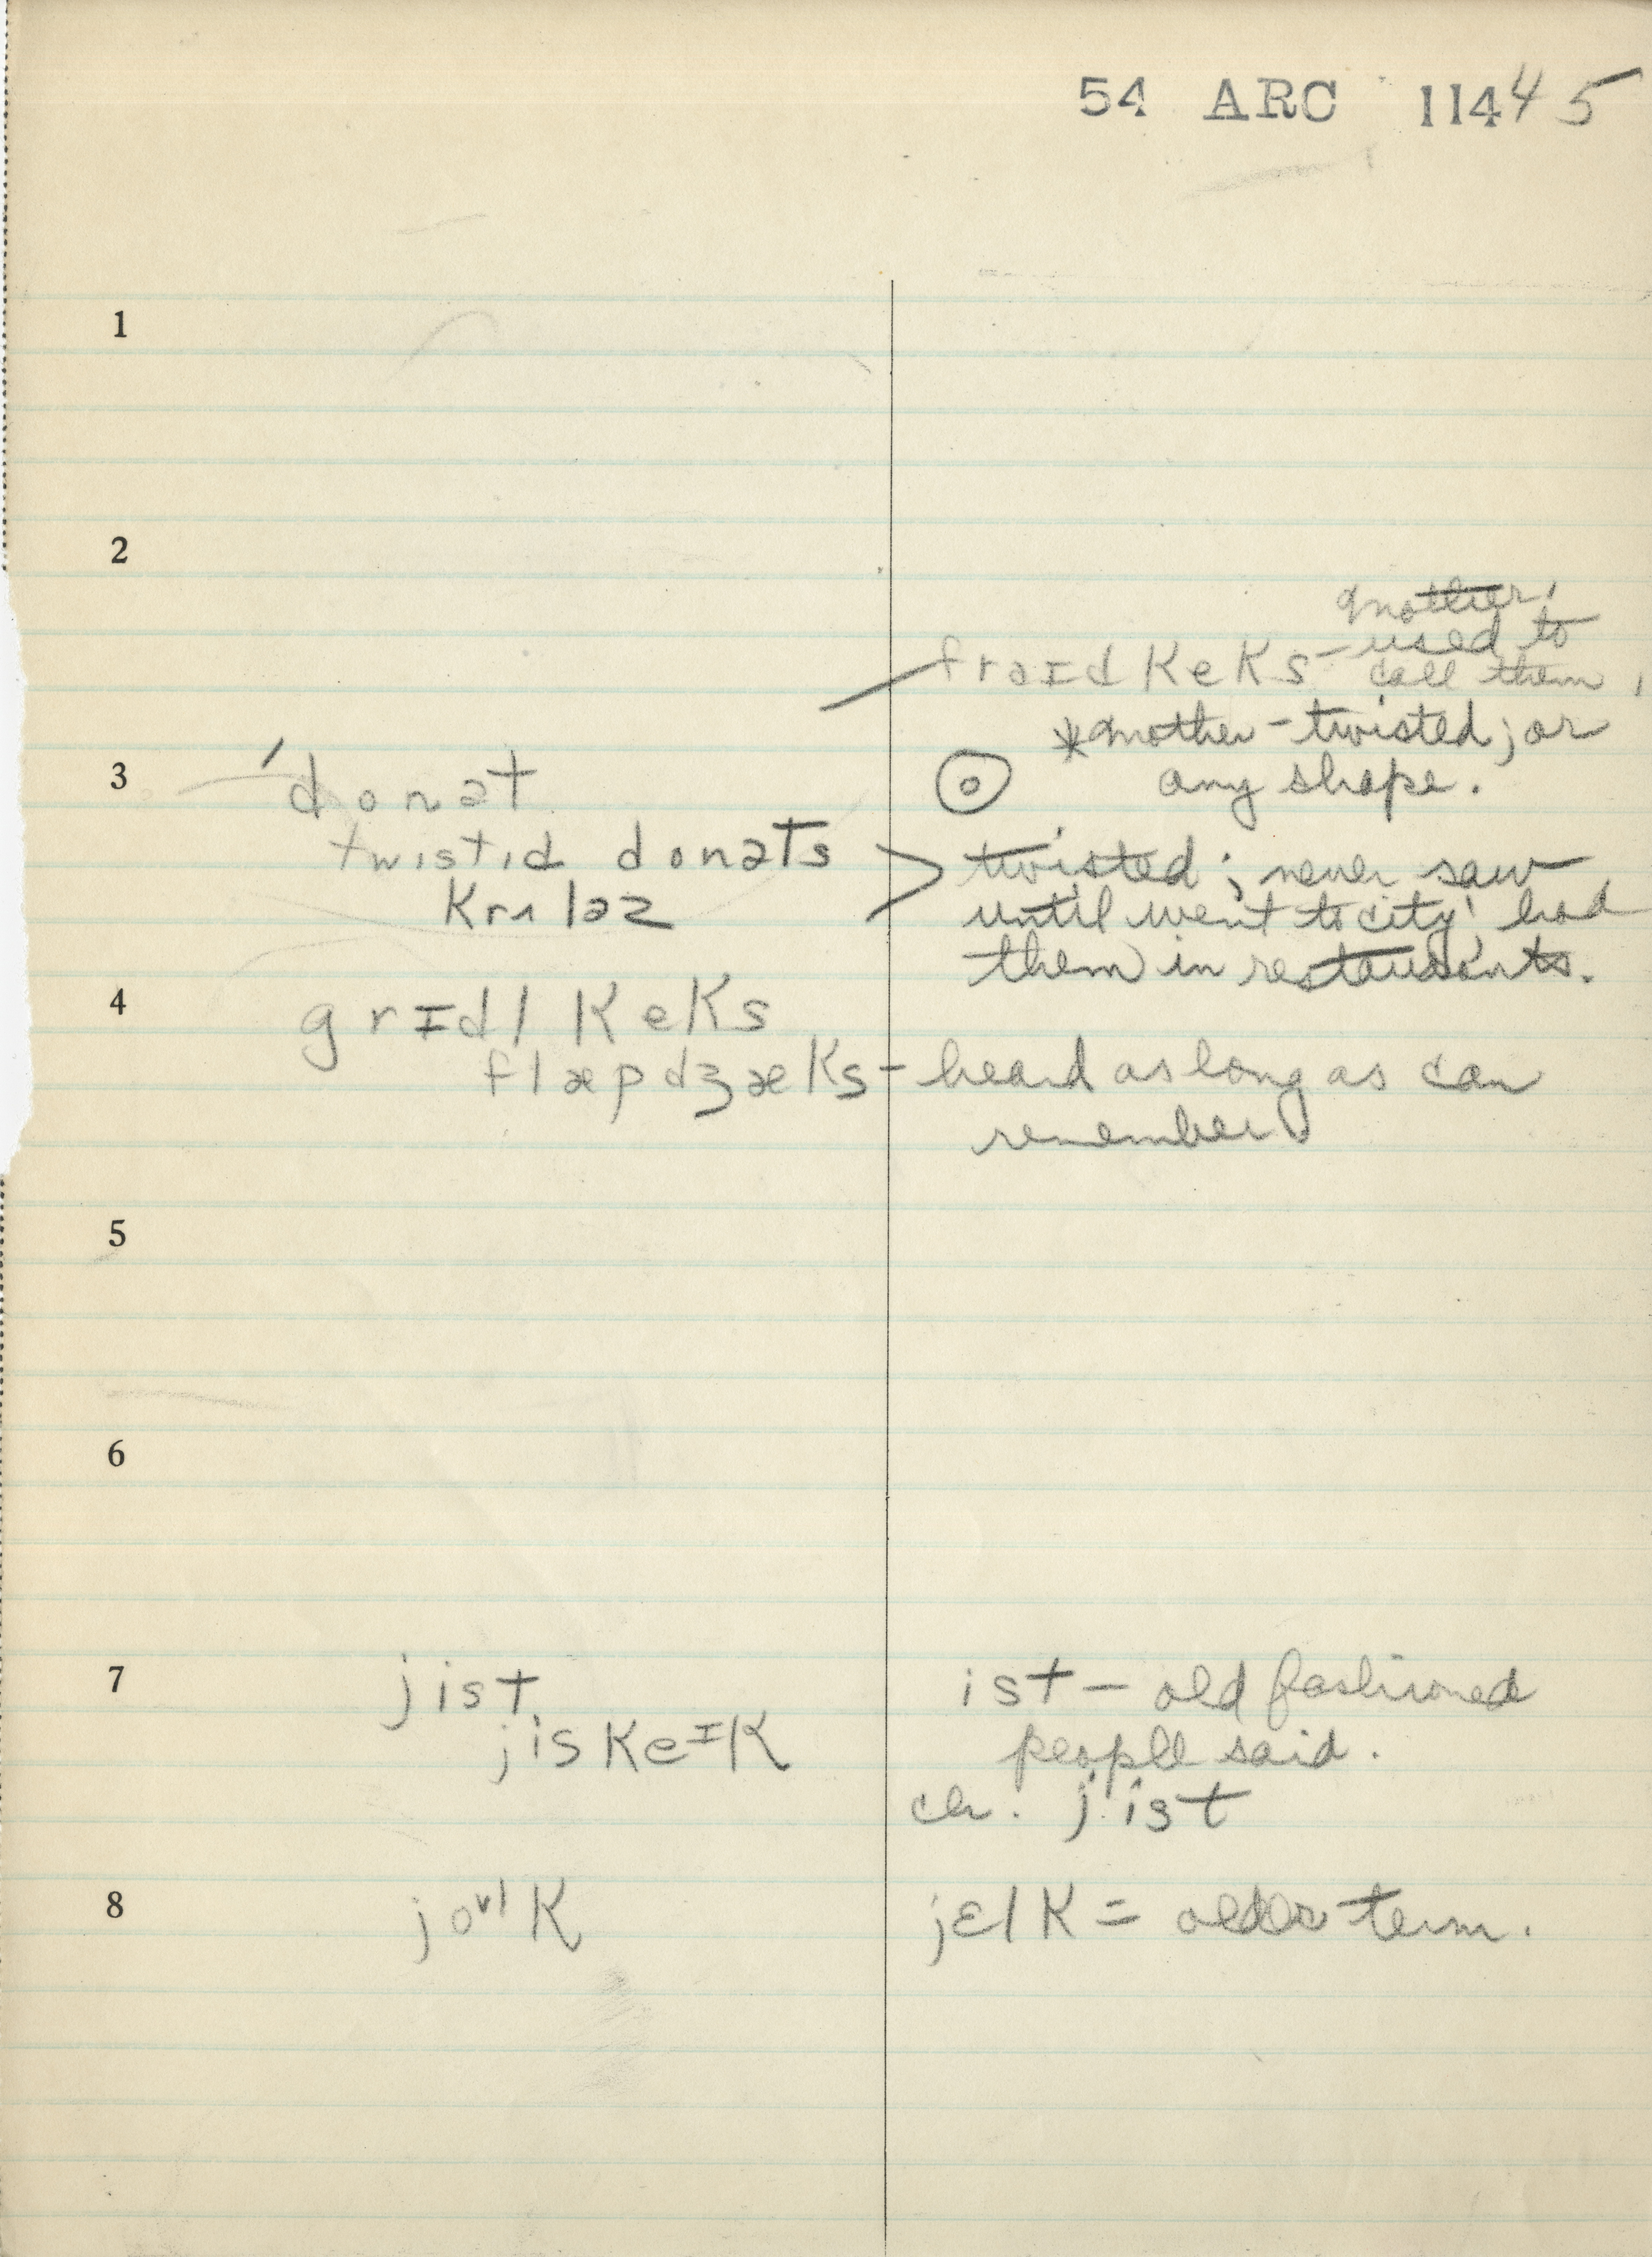 54 ARC 11445
1
2
mother,
used to
fraɪd keks – call them,
*mother – twisted; or
3 ˈdonət any shape.
twistid donəts > twisted; never saw
krʌləz until went to city; had
them in restaurants.
4 grɪdl keks
flæpdʒæks – heard as long as can
remember
5
6
7 jist ist – old fashioned
jiskeɪk people said.
ch. jist
8 joᵛˡk jɛlk = older term.